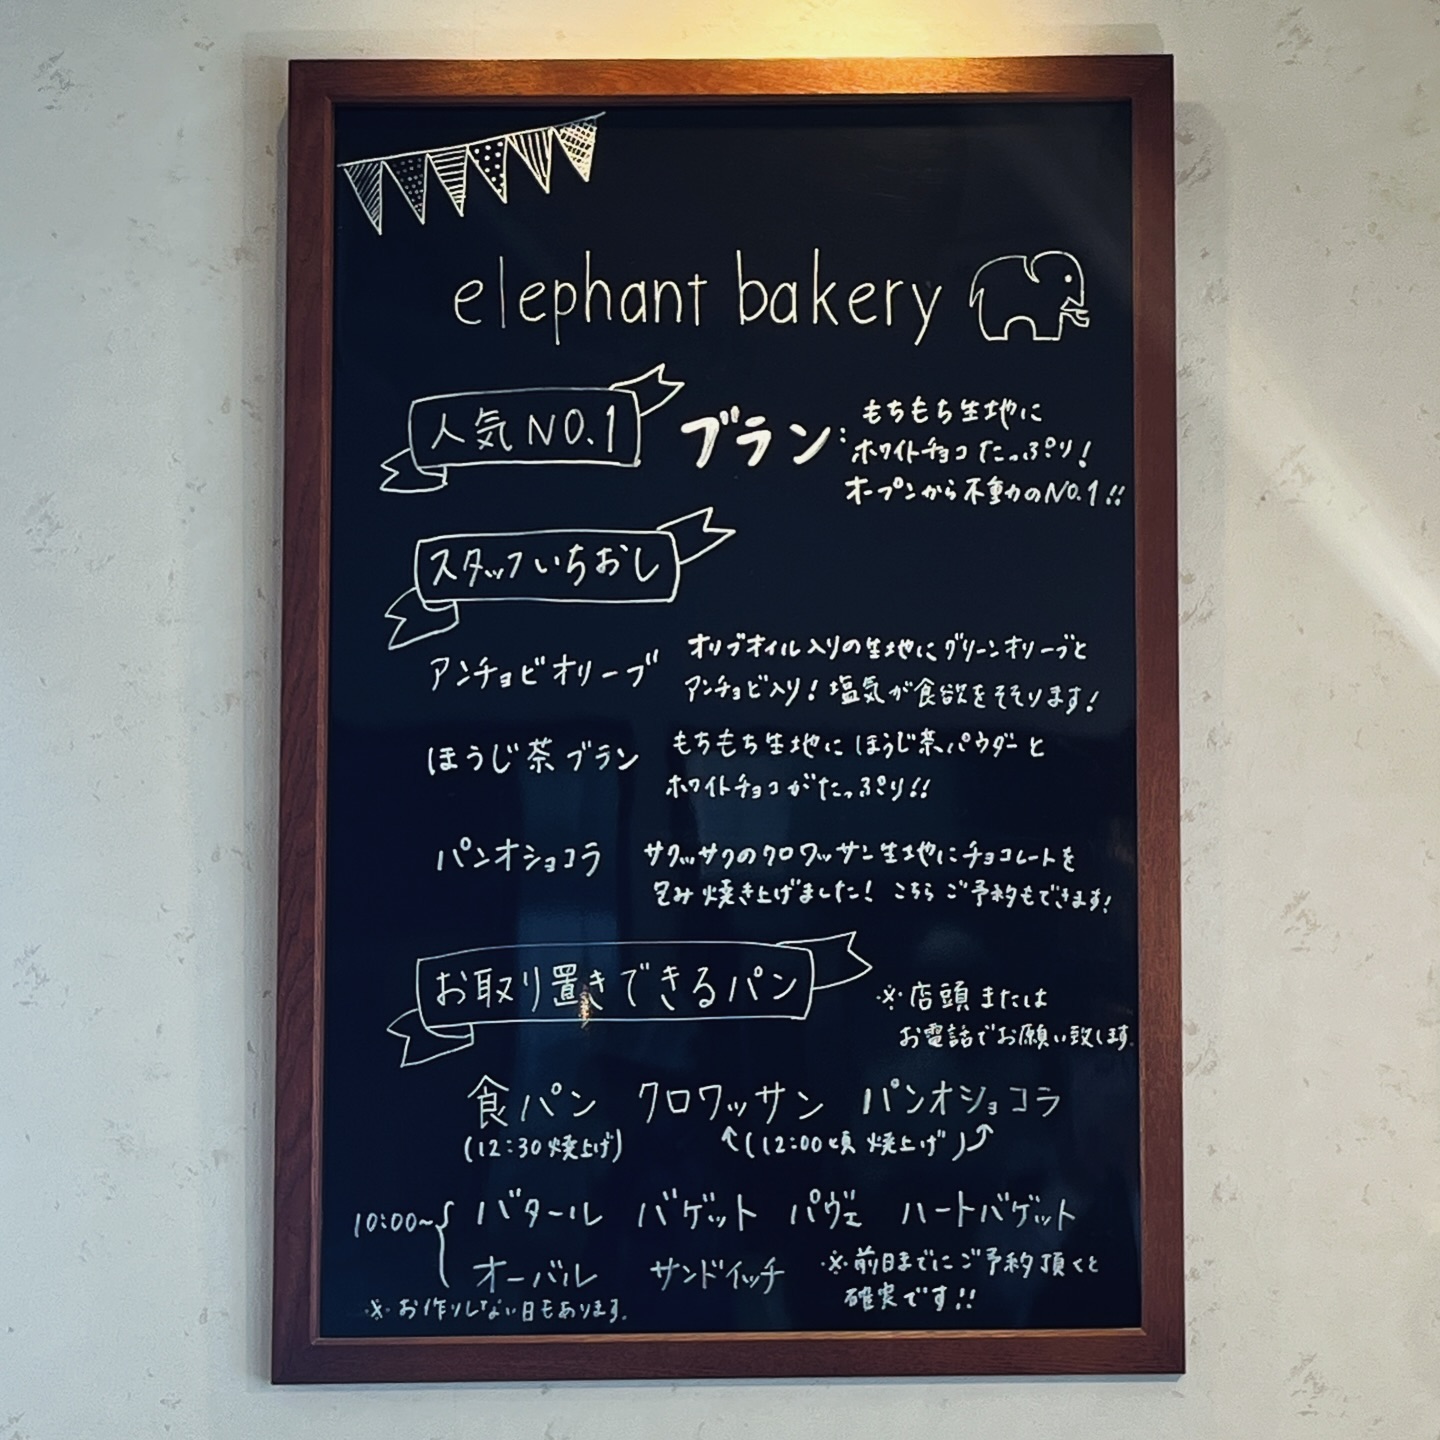 elephant bakery
人気NO.1
ブラン:
もちもち生地に
ホワイトチョコたっぷり!
オープンから不動のNO.1!!
スタッフいちおし
アンチョビオリーブ
オリブオイル入りの生地にグリーンオリーブと
アンチョビ入り!塩気が食欲をそそります!
ほうじ茶ブラン
もちもち生地にほうじ茶パウダーと
ホワイトチョコがたっぷり!!
パンオショコラ
サクッサクのクロワッサン生地にチョコレートを
包み焼き上げました! こちらご予約もできます!
お取り置きできるパン
※店頭または
お電話でお願い致します
食パン クロワッサン パンオショコラ
(12:30焼上げ) (12:00頃 焼上げ)
10:00~
バタール バゲット パヴェ ハートバゲット
オーバル サンドイッチ
※前日までにご予約頂くと
確実です!!
※お作りしない日もあります。